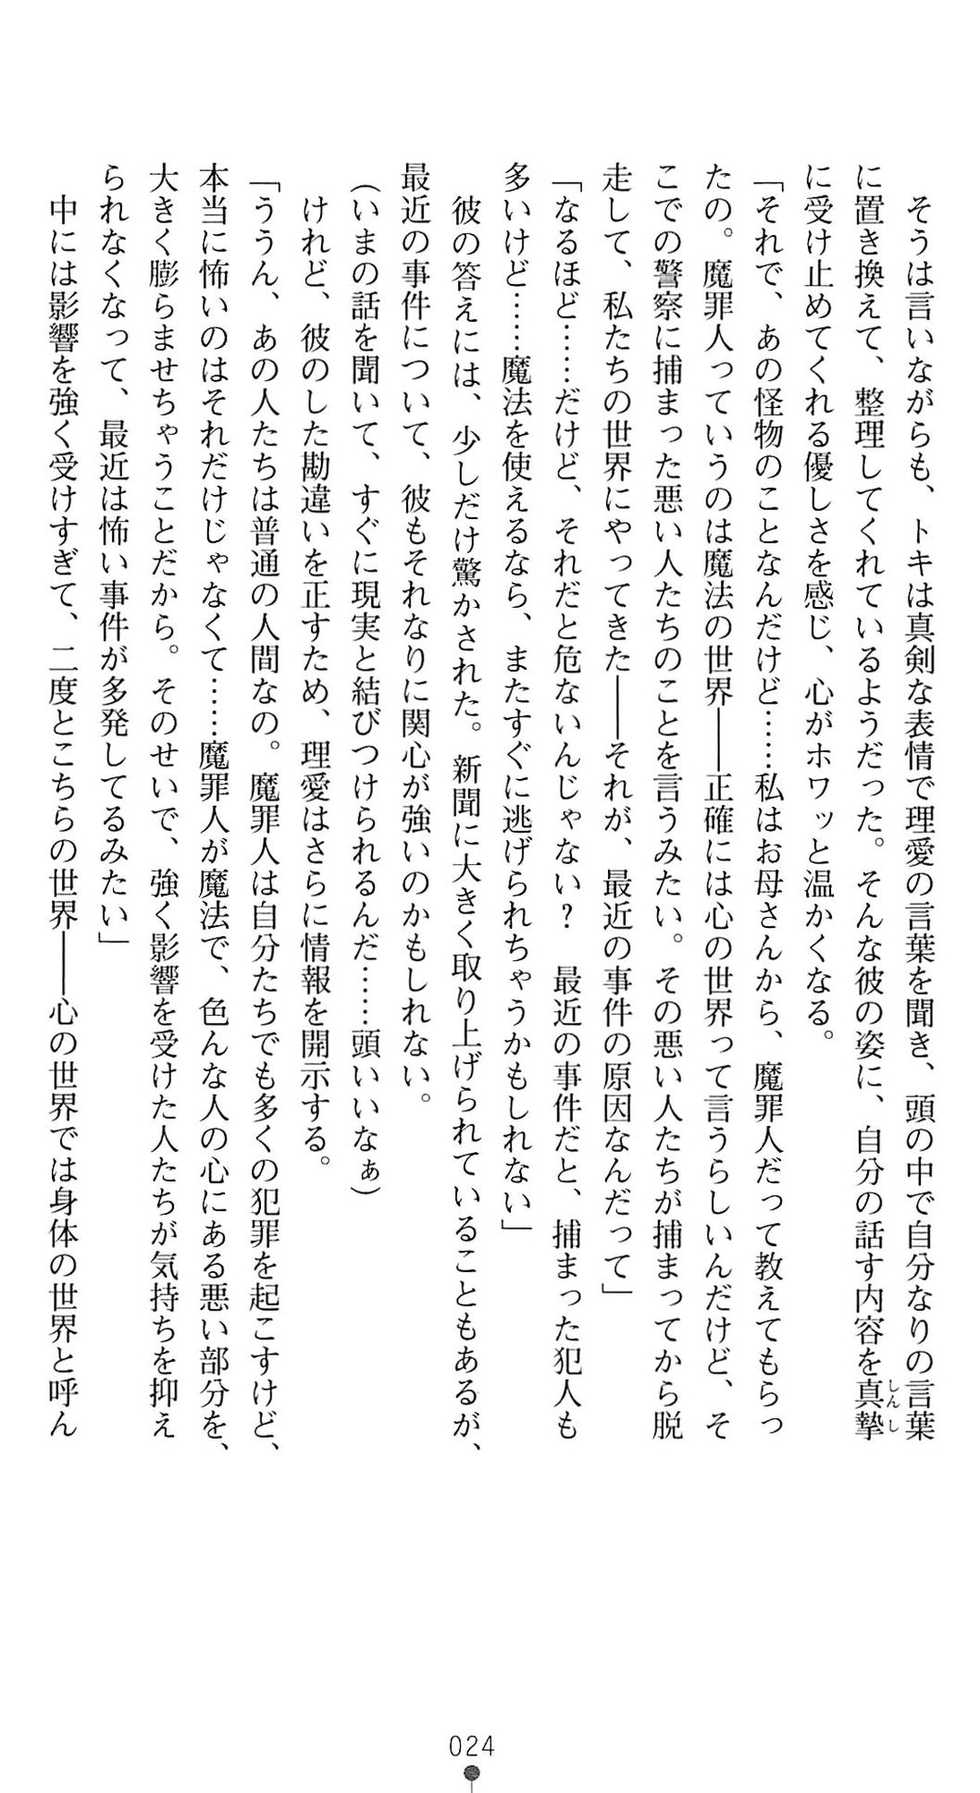 そうは言いながらも、トキは真剣な表情で理愛の言葉を聞き、頭の中で自分なりの言葉
に置き換えて、整理してくれているようだった。そんな彼の姿に、自分の話す内容を真摯
しんし
に受け止めてくれる優しさを感じ、心がホワッと温かくなる。
「それで、あの怪物のことなんだけど……私はお母さんから、魔罪人だって教えてもらっ
たの。魔罪人っていうのは魔法の世界――正確には心の世界って言うらしいんだけど、そ
こでの警察に捕まった悪い人たちのことを言うみたい。その悪い人たちが捕まってから脱
走して、私たちの世界にやってきた――それが、最近の事件の原因なんだって」
「なるほど……だけど、それだと危ないんじゃない？　最近の事件だと、捕まった犯人も
多いけど……魔法を使えるなら、またすぐに逃げられちゃうかもしれない」
彼の答えには、少しだけ驚かされた。新聞に大きく取り上げられていることもあるが、
最近の事件について、彼もそれなりに関心が強いのかもしれない。
（いまの話を聞いて、すぐに現実と結びつけられるんだ……頭いいなぁ）
けれど、彼のした勘違いを正すため、理愛はさらに情報を開示する。
「ううん、あの人たちは普通の人間なの。魔罪人は自分たちでも多くの犯罪を起こすけど、
本当に怖いのはそれだけじゃなくて……魔罪人が魔法で、色んな人の心にある悪い部分を、
大きく膨らませちゃうことだから。そのせいで、強く影響を受けた人たちが気持ちを抑え
られなくなって、最近は怖い事件が多発してるみたい」
中には影響を強く受けすぎて、二度とこちらの世界――心の世界では身体の世界と呼ん
024